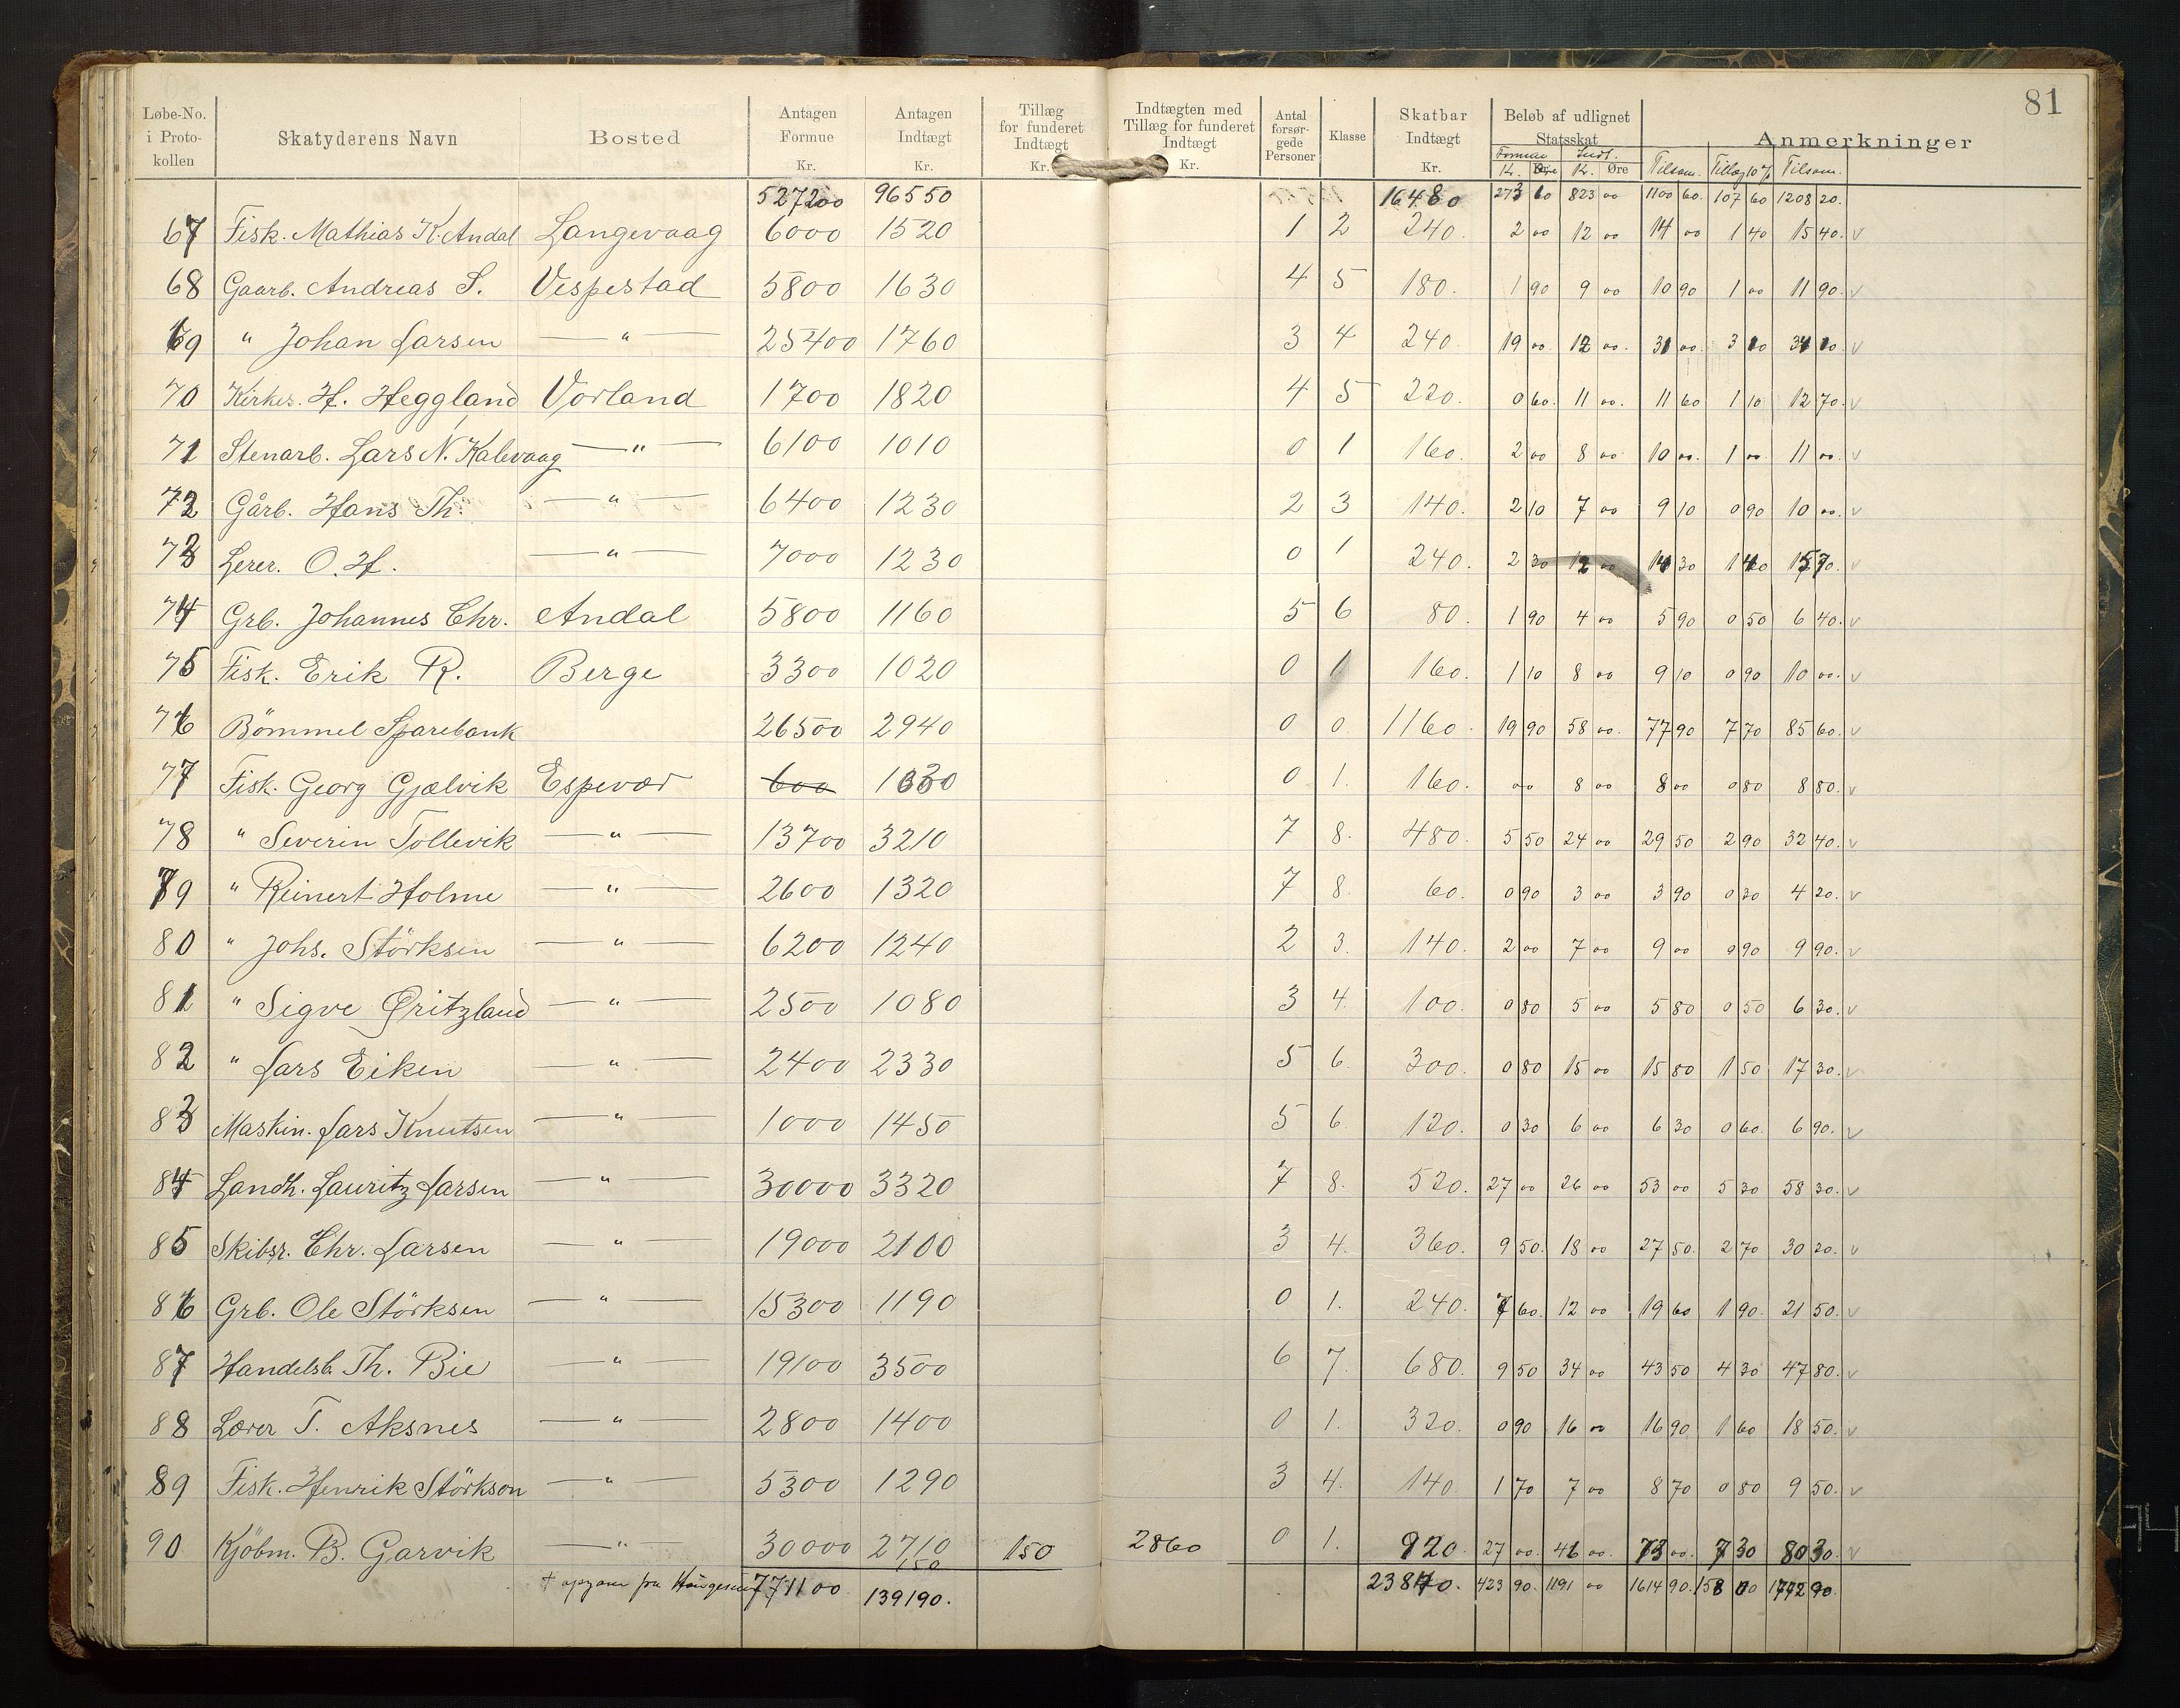 81
Løbe-No. i Proto- kollen | Skatyderens Navn | Bosted | Antagen Formue Kr. | Antagen Indtægt Kr. | Tillæg for funderet Indtægt Kr. | Indtægten med Tillæg for funderet Indtægt Kr. | Antal forsør- gede Personer | Klasse | Skatbar Indtægt Kr. | Beløb af udlignet Statsskat Formue K. Øre Indt. K. Øre | Anmerkninger Tilsam. Tillæg 10 % Tilsam.
527200 96550 16480 273 60 823 00 1100 60 107 60 1208 20.
67 Fisk. Mathias K. Andal Langevaag 6000 1520 1 2 240. 2 00 12 00 14 00 1 40 15 40. v
68 Gaarb. Andreas S. Vespestad 5800 1630 4 5 180. 1 90 9 00 10 90 1 00 11 90. v
69 " Johan Larsen — " — 25400 1760 3 4 240. 19 00 12 00. 31 00. 3 10 34 10. v
70 Kirkes. H. Heggland Vorland 1700 1820 4 5 220. 0 60. 11 00. 11 60 1 10 12 70. v
71 Stenarb. Lars N. Kalevaag — " — 6100 1010 0 1 160. 2 00 8 00 10 00. 1 00. 11 00. v
72 Gårb. Hans Th. — " — 6400 1230 2 3 140. 2 10 7 00 9 10 0 90 10 00. v
73 Lerer. O. H. — " — 7000 1230 0 1 240. 2 30 12 00 14 30 1 40 15 70. v
74 Grb. Johannes Chr. Andal 5800 1160 5 6 80. 1 90 4 00 5 90 0 50 6 40. v
75 Fisk. Erik R. Berge 3300 1020 0 1 160. 1 10 8 00 9 10 0 90 10 00. v
76 Bömmel Sparebank 26500 2940 0 0 1160. 19 90 58 00. 77 90 7 70 85 60. v
77 Fisk. Georg Gjælvik Espevær 600 1030 0 1. 160. 00 8 00 8 00 0 80 8 80. v
78 " Severin Tollevik — " — 13700 3210 7 8. 480. 5 50 24 00 29 50 2 90 32 40. v
79 " Reinert Holme — " — 2600 1320 7 8. 60. 0 90 3 00 3 90 0 30 4 20. v
80 " Johs. Störksen — " — 6200 1240 2 3. 140. 2 00 7 00 9 00 0 90 9 90. v
81 " Sigve Qritzland — " — 2500 1080 3 4. 100. 0 80 5 00 5 80 0 50 6 30. v
82 " Lars Eiken — " — 2400 2330 5 6. 300. 0 80 15 00 15 80 1 50 17 30. v
83 Maskin. Lars Knutsen — " — 1000 1450 5 6. 120. 0 30 6 00 6 30 0 60. 6 90. v
84 Landh. Lauritz Larsen — " — 30000 3320 7 8. 520. 27 00 26 00 53 00 5 30 58 30. v
85 Skibsr. Chr. Larsen — " — 19000 2100 3 4. 360. 9 50. 18 00 27 50. 2 70 30 20. v
86 Grb. Ole Störksen — " — 15300 1190 0 1. 240. 7 60. 12 00 19 60 1 90. 21 50. v
87 Handelsb. Th. Bie — " — 19100 3500 6 7. 680. 9 50 34 00 43 50 4 30 47 80. v
88 Lærer T. Aksnes — " — 2800 1400 0 1. 320. 0 90 16 00 16 90 1 60 18 50. v
89 Fisk. Henrik Störkson — " — 5300 1290 3 4. 140. 1 70 7 00 8 70 0 80 9 50. v
90 Kjöbm. B. Garvik — " — 30000 2710 150 2860 0 1. 920. 27 00. 46 00. 73 00. 7 30 80 30. v
150
771100 139190. 23870. 423 90. 1191 00 1614 90. 158 00 1772 90.